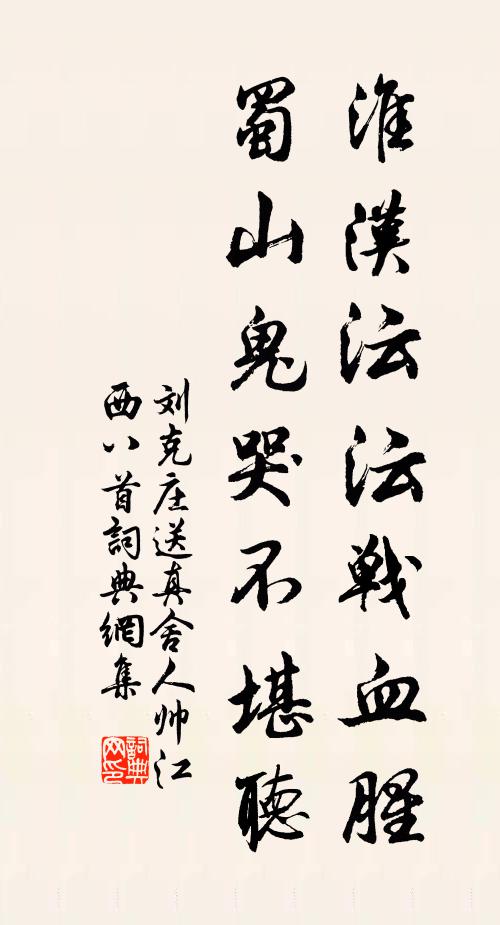 淮漢沄沄戦血腥
蜀山鬼哭不堪聽
刘克庄送真舍人帅江
西八首詞典網集
詞典
网印